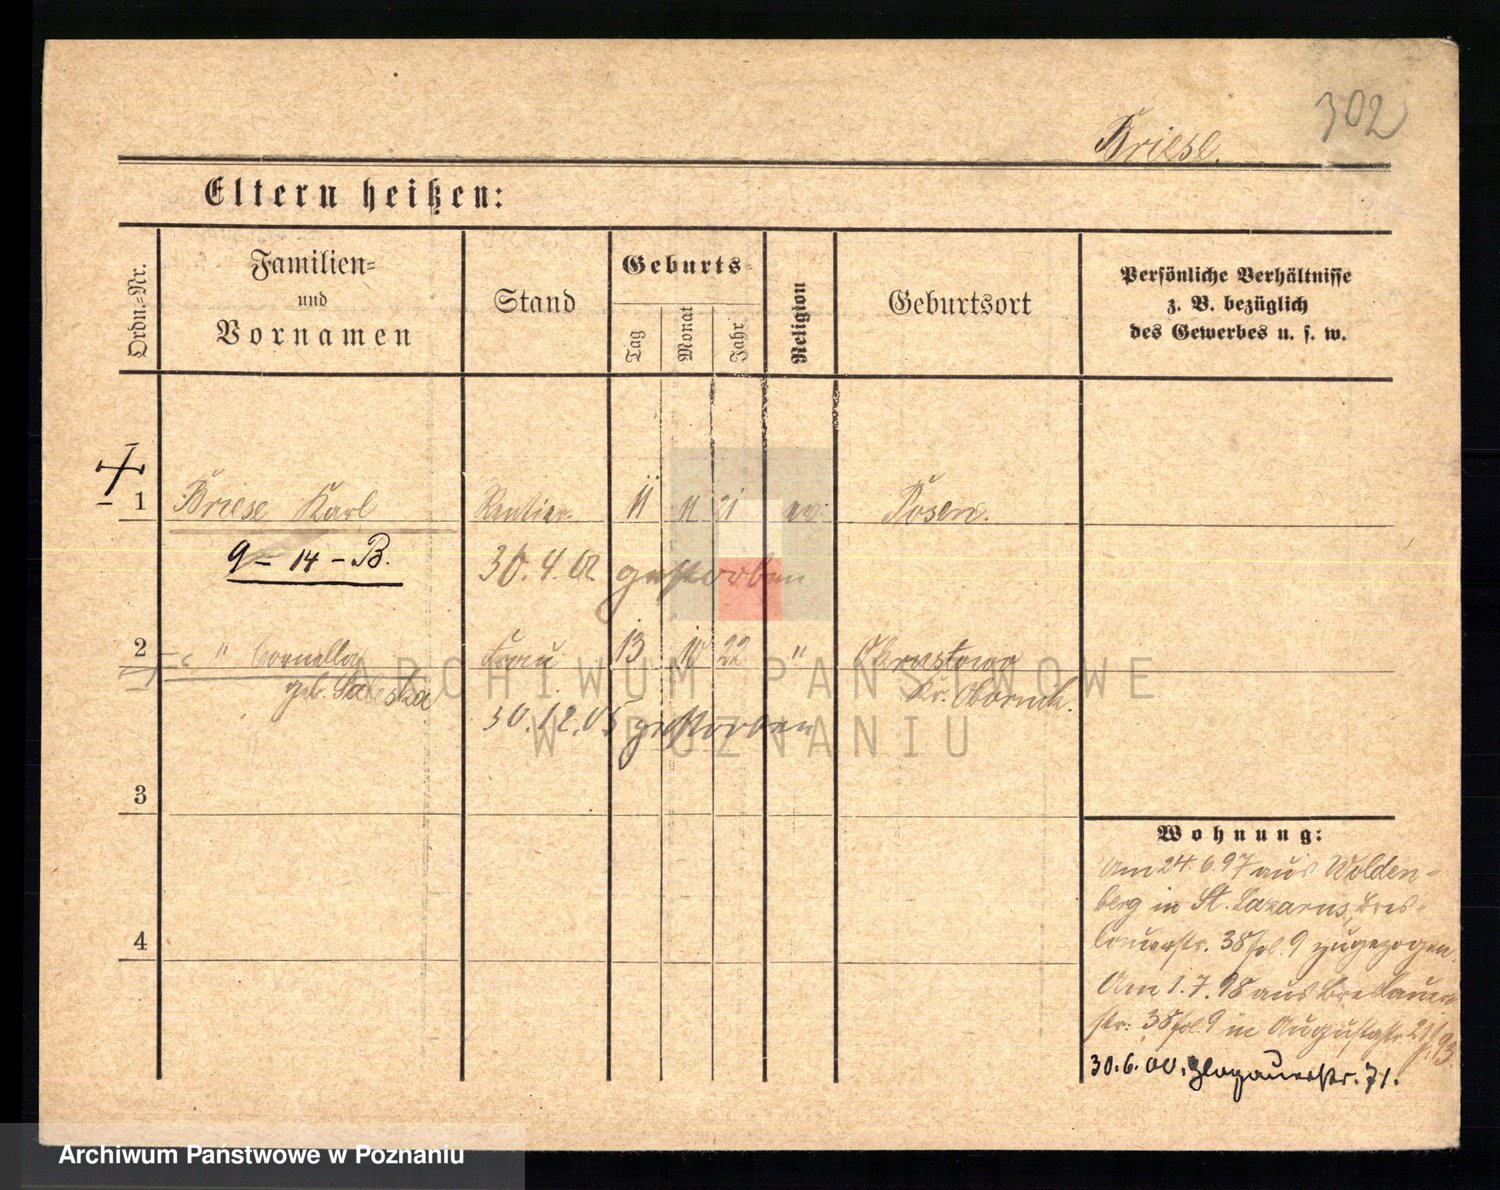 302
Briese.
Eltern heißen:
Ordn.=Nr.
Familien=
und
Vornamen
Stand
Geburts=
Tag
Monat
Jahr
Religion
Geburtsort
Persönliche Verhältnisse
z. B. bezüglich
des Gewerbes u. s. w.
1 Briese Karl Rentier. 11 11 21 ev: Posen.
9 = 14 - B. 30.4.02 gestorben
2 " Cornelia Frau 13 10 22 "
geb. Kr. Obornik.
30.12.05 gestorben
3
4
Wohnung:
Am 24.6 97 aus Wolden-
berg in St. Lazarus, Bres-
lauerstr. 38 fol. 9 zugezogen.
Am 1.7.98 aus Breslauer
str: 38 fol. 9 in Augustastr. 2
30.6.00. Glogauerstr. 71.
ARCHIWUM PAŃSTWOWE
W POZNANIU
Archiwum Państwowe w Poznaniu